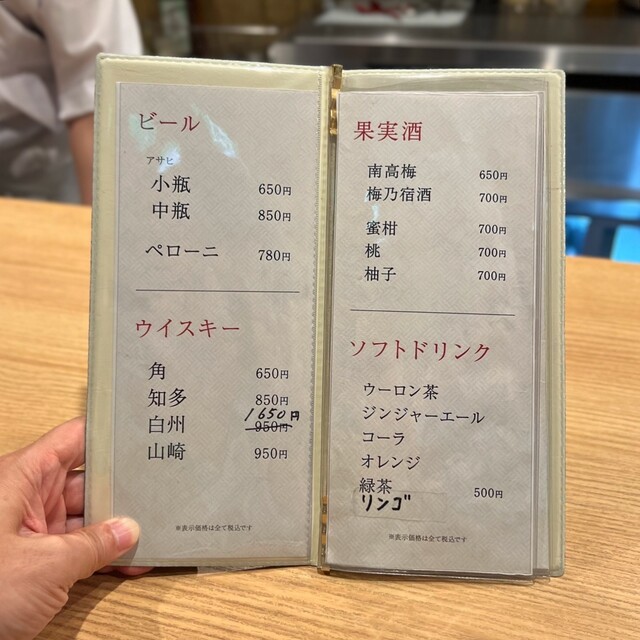 ビール
アサヒ
小瓶 650円
中瓶 850円
ペローニ 780円
ウイスキー
角 650円
知多 850円
1650円
白州 950円
山崎 950円
※表示価格は全て税込です
果実酒
南高梅 650円
梅乃宿酒 700円
蜜柑 700円
桃 700円
柚子 700円
ソフトドリンク
ウーロン茶
ジンジャーエール
コーラ
オレンジ
緑茶 500円
リンゴ
※表示価格は全て税込です